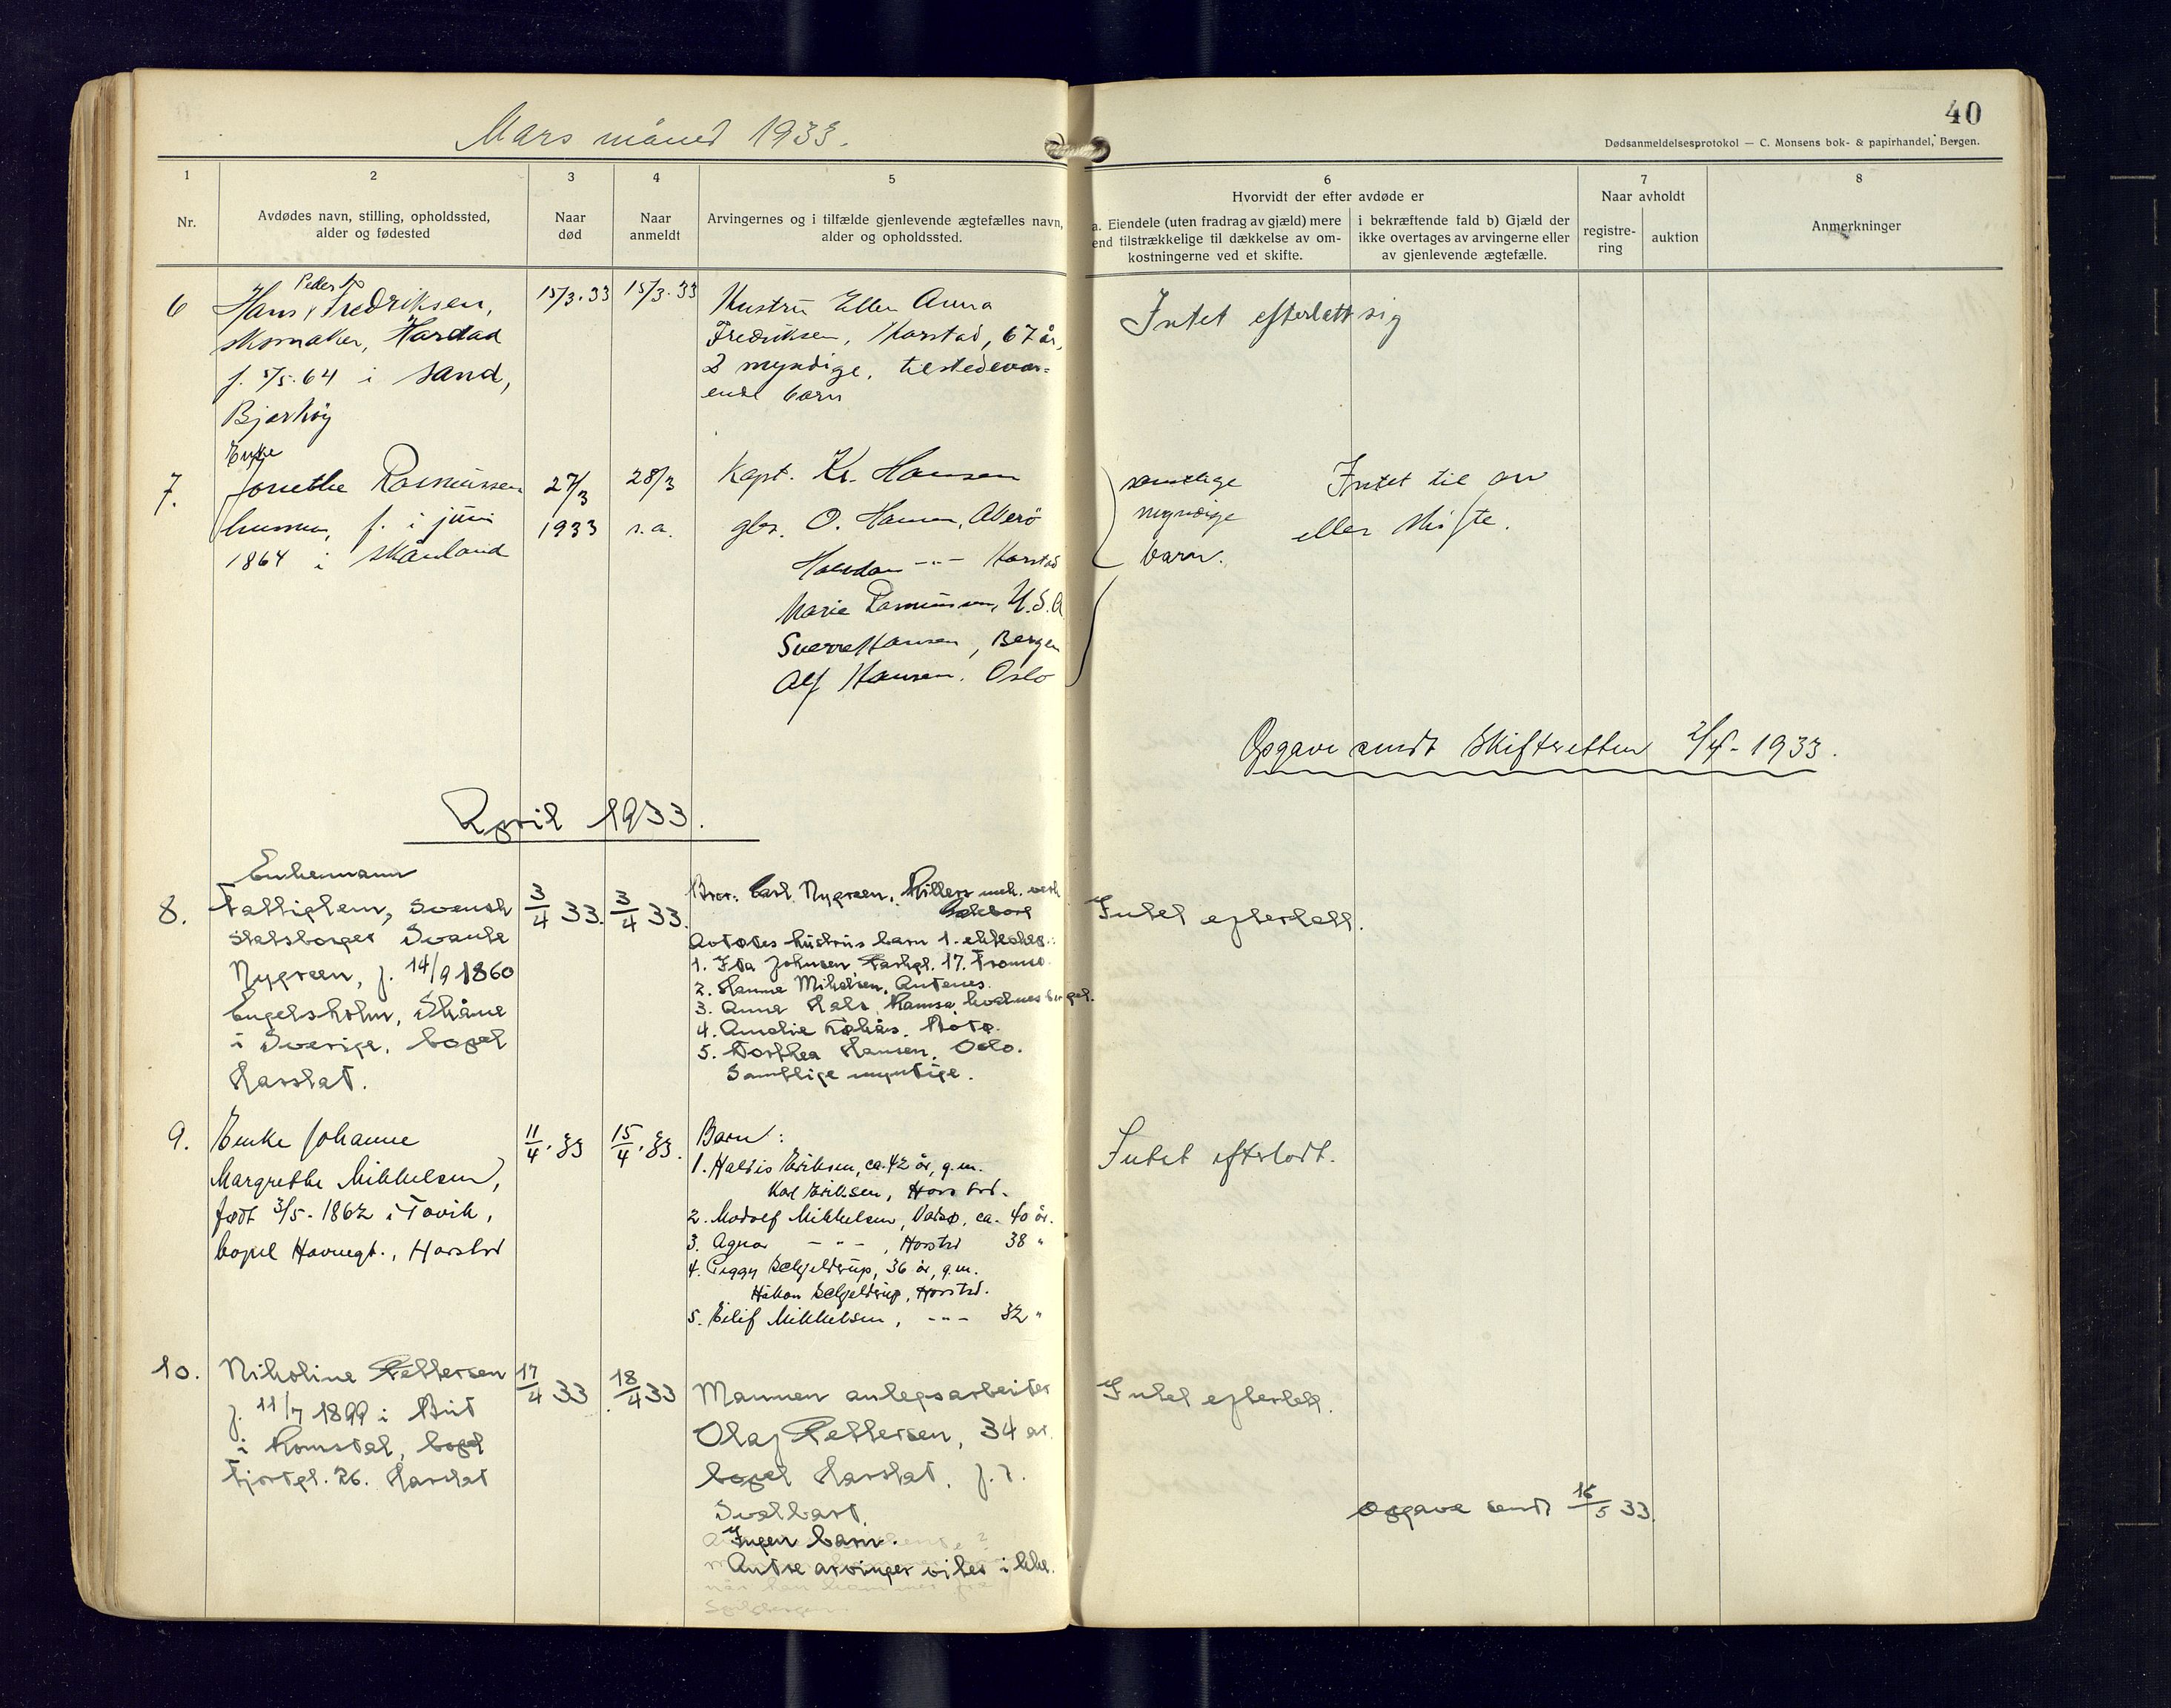 Mars måned 1933.
40
Dødsanmeldelsesprotokol — C. Monsens bok- & papirhandel, Bergen.
1
2
3
4
5
6
7
8
Nr.
Avdødes navn, stilling, opholdssted,
alder og fødested
Naar
død
Naar
anmeldt
Arvingernes og i tilfælde gjenlevende ægtefælles navn,
alder og opholdssted.
Hvorvidt der efter avdøde er
a. Eiendele (uten fradrag av gjæld) mere
end tilstrækkelige til dækkelse av om-
kostningerne ved et skifte.
i bekræftende fald b) Gjæld der
ikke overtages av arvingerne eller
av gjenlevende ægtefælle.
Naar avholdt
registre-
ring
auktion
Anmerkninger
6
Peder
Hans Fredriksen,
skomaker, Harstad
f. 5/5.64 i Sand,
Bjarkøy
15/3.33
15/3.33
Hustru Ellen Anna
Fredriksen, Harstad, 67 år,
2 myndige, tilstedevær-
ende barn
Intet efterlatt sig
7.
Enke
Jonethe Rasmussen
f. i juni
1864 i Skånland
27/3
1933
28/3
s.a.
Kapt. Kr. Hansen
O. Hansen,
Halvdan -"- Harstad
Marie Rasmussen, U.S.A
Sverre Hansen, Bergen
Alf Hansen. Oslo
samtlige
myndige
barn.
Intet til arv
eller skifte.
Opgave sendt Skifteretten 2/4-1933.
April 1933.
8.
Enkemann
Fattiglem, svensk
statsborger Svante
Nygreen, f. 14/9 1860
Engelsholm, Skåne
i Sverige, bopel
Harstad.
3/4 33.
3/4 33.
Bror: Carl Nygreen, mek. verk
Avdødes hustrus barn 1. ekteskap:
1. Ida Johnsen, 17. Tromsø.
2. Hanna Mikalsen,
3. Anna
4. Amalie Bodø.
5. Dorthea Hansen. Oslo.
Samtlige myndige.
Intet efterlatt.
9.
Enke Johanne
Margrethe Mikkelsen,
født 3/5-1862 i Tovik,
bopel Havnegt., Harstad
11/4.33
15/4.33.
Barn:
1. Haldis Eriksen, ca. 42 år, g.m.
Karl Eriksen, Harstad.
2. Modolf Mikkelsen, Vadsø, ca. 40 år.
3. Agnar -"-, Harstad 38 "
4. Peggy Schjelderup, 36 år, g.m.
Håkon Schjelderup, Harstad.
5. Eilif Mikkelsen, -"- 32 "
Intet efterlatt.
10.
Nikoline Pettersen
f. 11/7 1899 i Bud
i Romsdal, bopel
Fjordgt. 26. Harstad
17/4 33
18/4 33
Mannen anlegsarbeider
Olaf Pettersen, 34 år.
bopel Harstad. f.t.
Svalbard.
Ingen barn.
Andre arvinger vites ikke.
Intet efterlatt.
Opgave sendt 16/5 33.